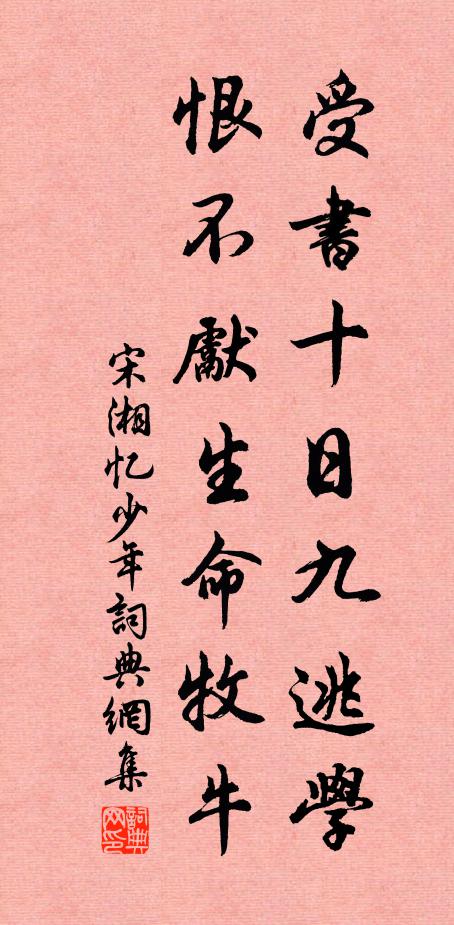 受書十日九逃學
恨不獻生命牧牛
宋湘忆少年詞典網集
詞典网印